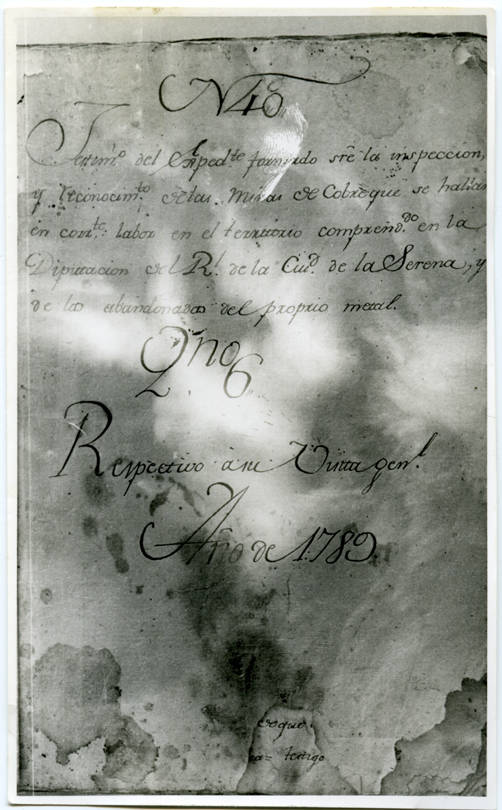 N 40
Testim.º del Exped.te formado sre la inspeccion,
y reconocim.to de las Minas de Cobre que se hallan
en corr.te labor en el territorio comprend.do en la
Diputacion del R.l de la Ciud. de la Serena, y
de las abandonadas del proprio metal.
Qno 6
Respectivo à su Visita gen.l
Año de 1789